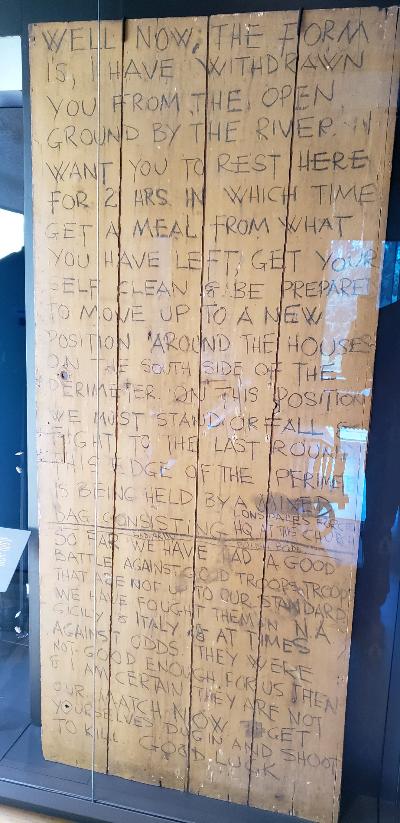 WELL NOW, THE FORM
IS, I HAVE WITHDRAWN
YOU FROM THE OPEN
GROUND BY THE RIVER. I
WANT YOU TO REST HERE
FOR 2 HRS IN WHICH TIME
GET A MEAL FROM WHAT
YOU HAVE LEFT, GET YOUR
SELF CLEAN & BE PREPARE
TO MOVE UP TO A NEW
POSITION AROUND THE HOUSES
ON THE SOUTH SIDE OF THE
PERIMETER. ON THIS POSITION
WE MUST STAND OR FALL &
FIGHT TO THE LAST ROUND
THIS EDGE OF THE PERIME
IS BEING HELD BY A MIXED
BAG CONSISTING
LONSDALES FORCE
HQ IN THIS CHURCH
SO FAR WE HAVE HAD A GOOD
BATTLE AGAINST GOOD TROOPS, TROOP
THAT ARE NOT UP TO OUR STANDARD
WE HAVE FOUGHT THEM IN N.A
SICILY & ITALY, & AT TIMES
AGAINST ODDS. THEY WERE
NOT GOOD ENOUGH FOR US THEN
& I AM CERTAIN THEY ARE NOT
OUR MATCH NOW. GET
YOURSELVES DUG IN AND SHOOT
TO KILL GOOD LUCK